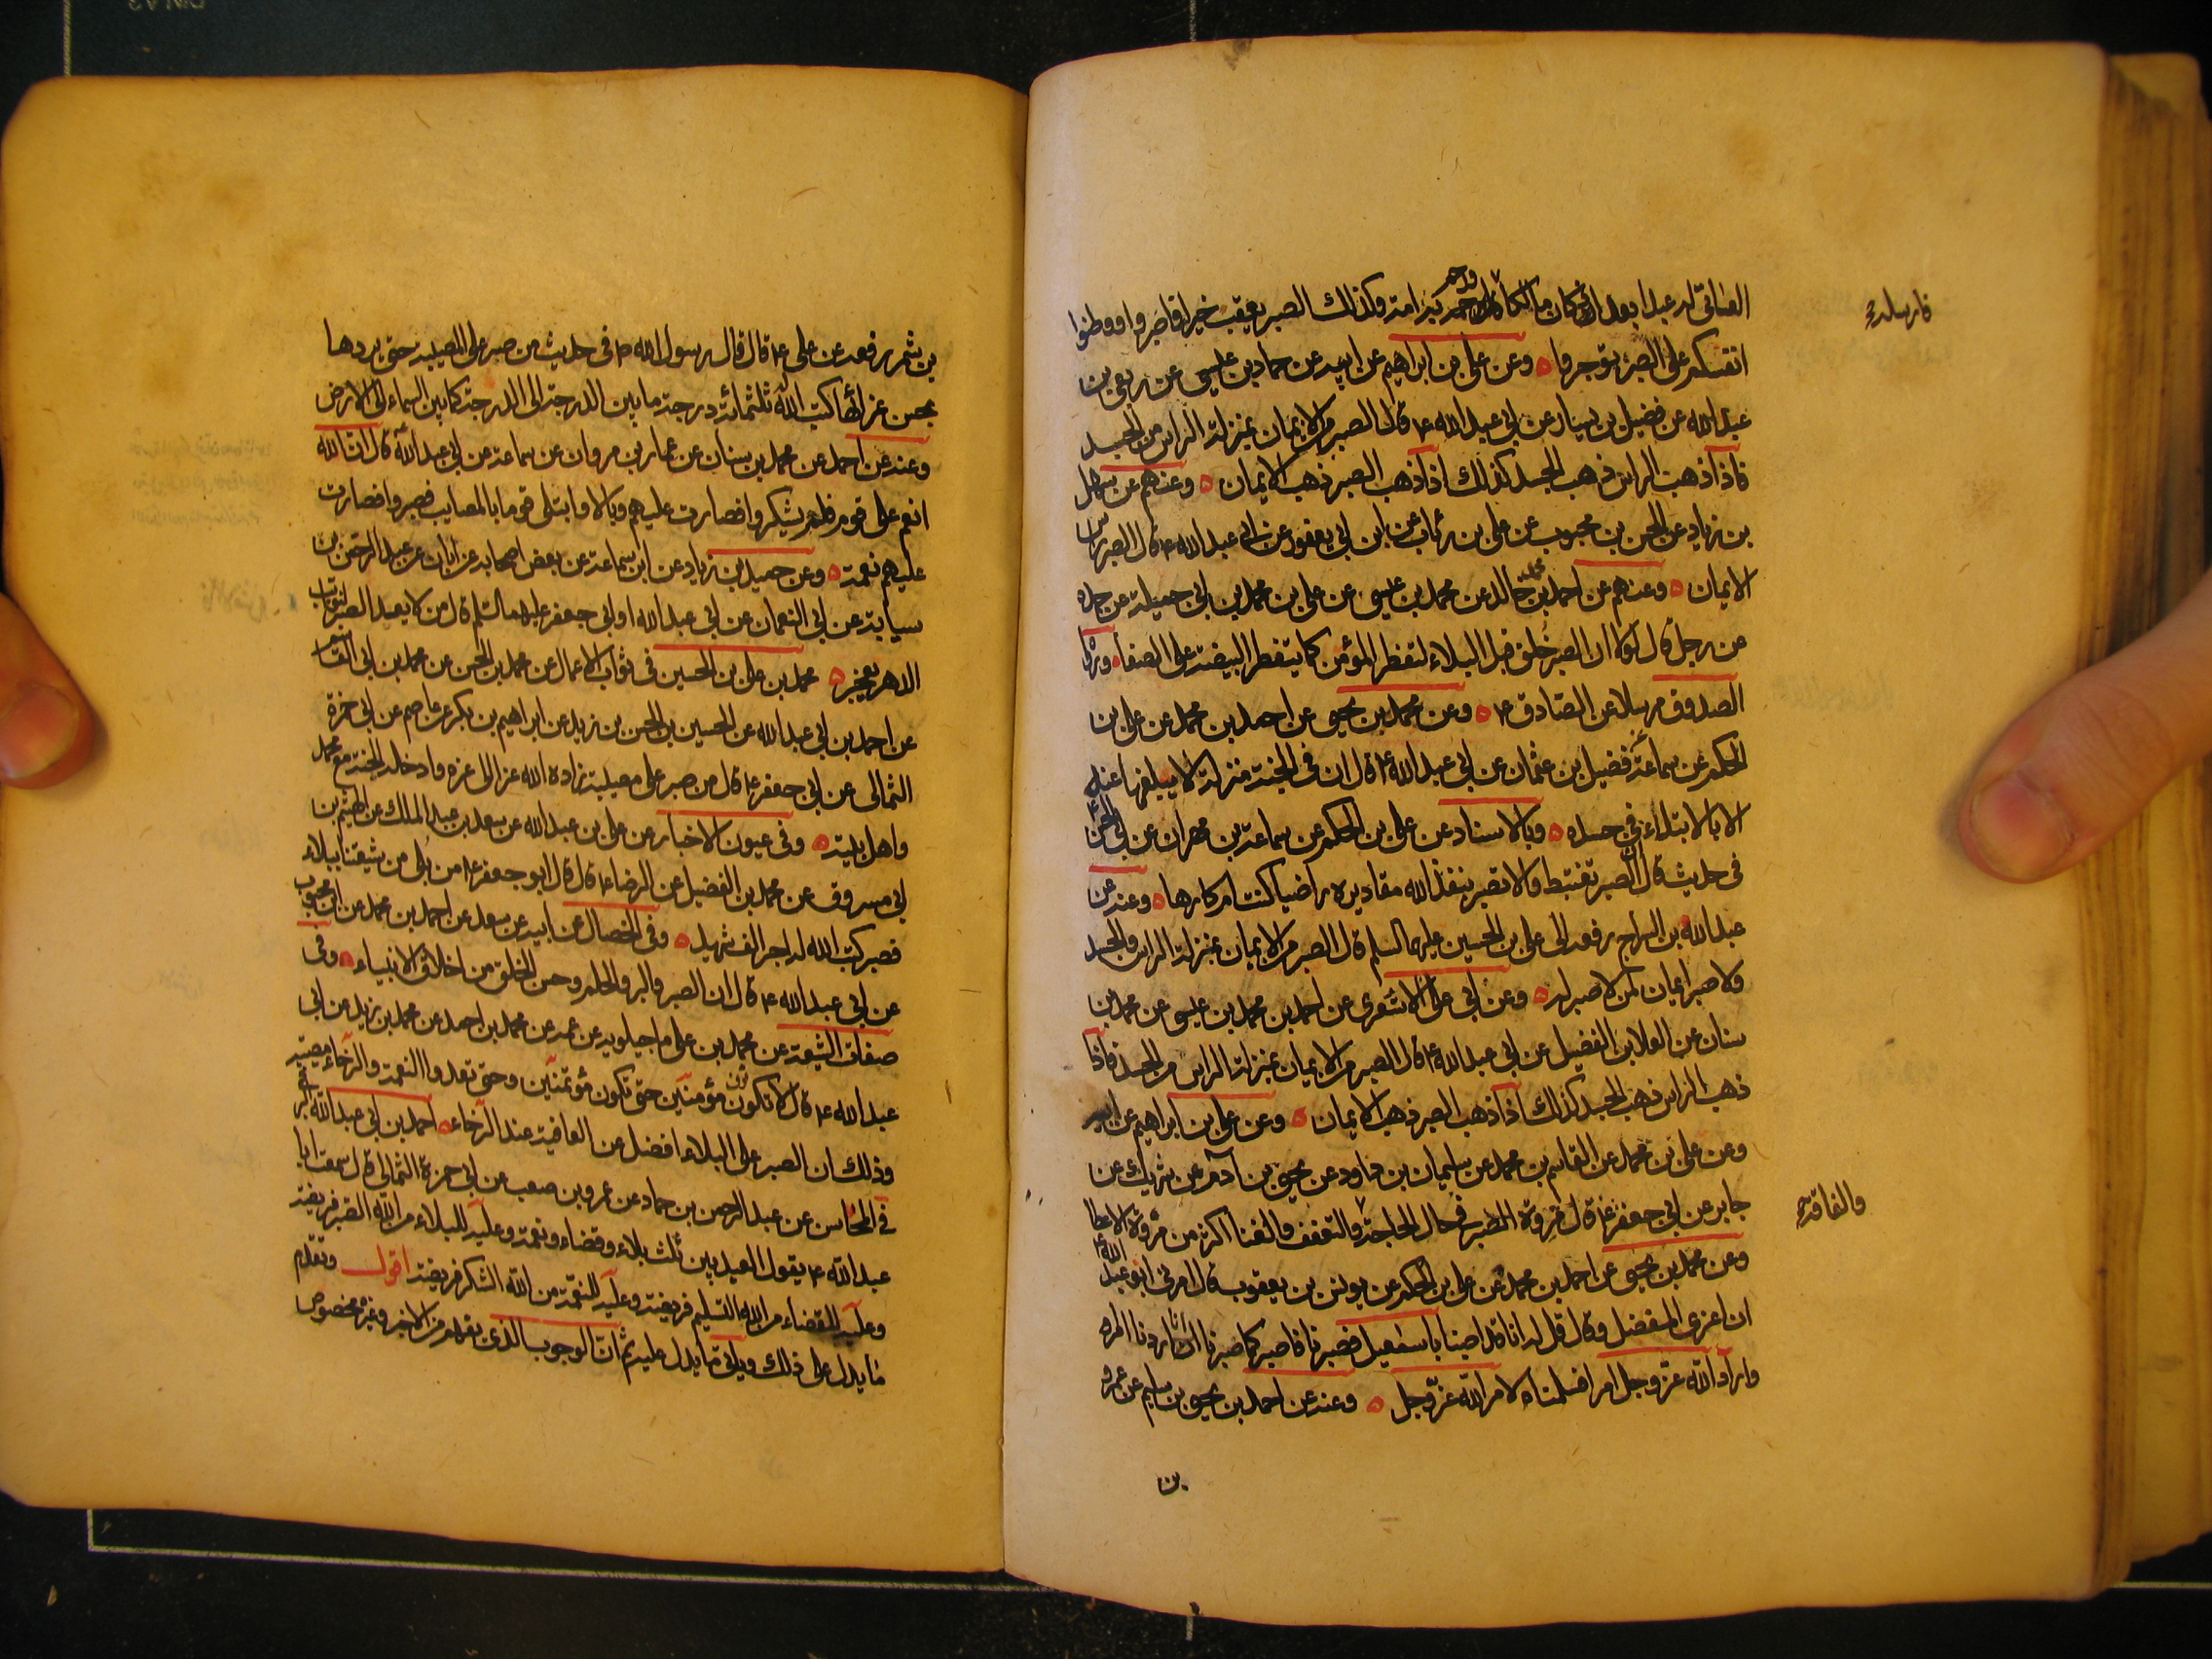 العاتى له عبدا بعد اذ كان مالكا فارسله ورحم به امته وكذلك الصبر يعقب خيرا فاصبروا ووطنوا
فارسله
انفسكم على الصبر توجروا ه وعن على بن ابراهيم عن ابيه عن حماد بن عيسى عن ربعى بن
عبد الله عن فضيل بن يسار عن ابى عبد الله ع قال الصبر من الايمان بمنزلة الراس من الجسد
فاذا ذهب الراس ذهب الجسد كذلك اذا ذهب الصبر ذهب الايمان ه وعنهم عن سهل
بن زياد عن الحسن بن محبوب عن على بن رئاب عن ابن ابى يعفور عن ابى عبد الله ع قال الصبر راس
الايمان ه وعنهم عن احمد بن محمد بن خالد عن محمد بن عيسى عن على بن محمد بن ابى جميلة عن جده
عن رجل قال لولا ان الصبر خلق قبل البلاء لتفطر المؤمن كما يتفطر البيضة على الصفا ه ورواه
الصدوق مرسلا عن الصادق ع ه وعن محمد بن يحيى عن احمد بن محمد عن على بن
الحكم عن سماعة فضيل بن عثمان عن ابى عبد الله ع قال ان فى الجنة منزلة لا يبلغها عبد
الا بالابتلاء فى جسده ه وبالاسناد عن على بن الحكم عن سماعة بن مهران عن ابى الحسن ع
فى حديث قال ان تصبر تغتبط والا تصبر ينفذ الله مقاديره راضيا كنت ام كارها ه وعنه عن
عبد الله بن السراج رفعه الى على بن الحسين عليهما السلم قال الصبر من الايمان بمنزلة الراس من الجسد
ولا صبر ايمان لمن لا صبر له ه وعن ابى على الاشعرى عن احمد بن محمد بن عيسى عن محمد بن
سنان عن العلا بن الفضيل عن ابى عبد الله ع قال الصبر من الايمان بمنزلة الراس من الجسد فاذا
ذهب الراس ذهب الجسد كذلك اذا ذهب الصبر ذهب الايمان ه وعن على بن ابراهيم عن ابيه
وعن على بن محمد عن القاسم بن محمد عن سليمان بن داود عن يحيى بن آدم عن شريك عن
جابر عن ابى جعفر ع قال مروة الصبر فى حال الحاجة والتعفف والغنا اكثر من مروة الاعطا
والفاقة
وعن محمد بن يحيى عن احمد بن محمد عن على بن الحكم عن يونس بن يعقوب قال امرنى ابو عبد الله ع
ان اعزى المفضل وقال قل له انا قد اصبنا باسمعيل فصبرنا فاصبر كما صبرنا انا اردنا امرا
واراد الله عز وجل امرا فسلمنا لامر الله عز وجل ه وعنه عن احمد بن يحيى بن سليم عن عمرو
بن
بن شمر رفعه عن على ع قال قال رسول الله ص فى حديث من صبر على المصيبة حتى يردها
بحسن عزائها كتب الله له ثلثمائة درجة ما بين الدرجة الى الدرجة كما بين السماء الى الارض
وعنه عن احمد عن محمد بن سنان عن عمار بن مروان عن سماعة عن ابى عبد الله ع قال ان الله
انعم على قوم فلم يشكروا فصارت عليهم وبالا وابتلى قوما بالمصايب فصبروا فصارت
عليهم نعمة ه وعن حميد بن زياد عن ابن سماعة عن بعض اصحابه عن ابان عن عبد الرحمن بن
سيابة عن ابى النعمان عن ابى عبد الله او ابى جعفر عليهما السلم قال من لا يعد الصبر لنوائب
الدهر يعجز ه محمد بن على بن الحسين فى ثواب الاعمال عن محمد بن الحسن عن محمد بن ابى القاسم
عن احمد بن ابى عبد الله عن الحسين بن الحسن بن زيد عن ابراهيم بن بكر عن عاصم عن ابى حمزة
الثمالى عن ابى جعفر ع قال من صبر على مصيبة زاده الله عزا الى عزه وادخله الجنة مع محمد
واهل بيته ه وفى عيون الاخبار عن على بن عبد الله عن سعد بن عبد الملك عن الهيثم بن
ابى مسروق عن محمد بن الفضيل عن الرضا ع قال قال ابو جعفر ع من بلى من شيعتنا ببلاء
فصبر كتب الله له اجر الف شهيد ه وفى الخصال عن ابيه عن سعد عن احمد بن محمد عن ابن محبوب
عن ابى عبد الله ع قال ان الصبر والبر والحلم وحسن الخلق من اخلاق الانبياء ه وفى
صفات الشيعة عن محمد بن على ماجيلويه عن عمه عن محمد بن احمد عن محمد بن يزيد عن ابى
عبد الله ع قال لا تكونون مؤمنين حتى تكون مؤتمنين وحتى تعدوا النعمة والرخاء مصيبة
وذلك ان الصبر على البلاء افضل من العافية عند الرخاء ه احمد بن ابى عبد الله البرقى
فى المحاسن عن عبد الرحمن بن حماد عن عمرو بن صعب عن ابى حمزة الثمالى قال سمعت ابا
عبد الله ع يقول العبد بين ثلث بلاء وقضاء ونعمة وعليه للبلاء من الله الصبر فريضة
وعليه للقضاء من الله التسليم فريضة وعليه للنعمة من الله الشكر فريضة اقول وتقدم
ما يدل على ذلك وياتى ما يدل عليه ثم ان الوجوب الذى يفهم من الاخير وغيره مخصوص